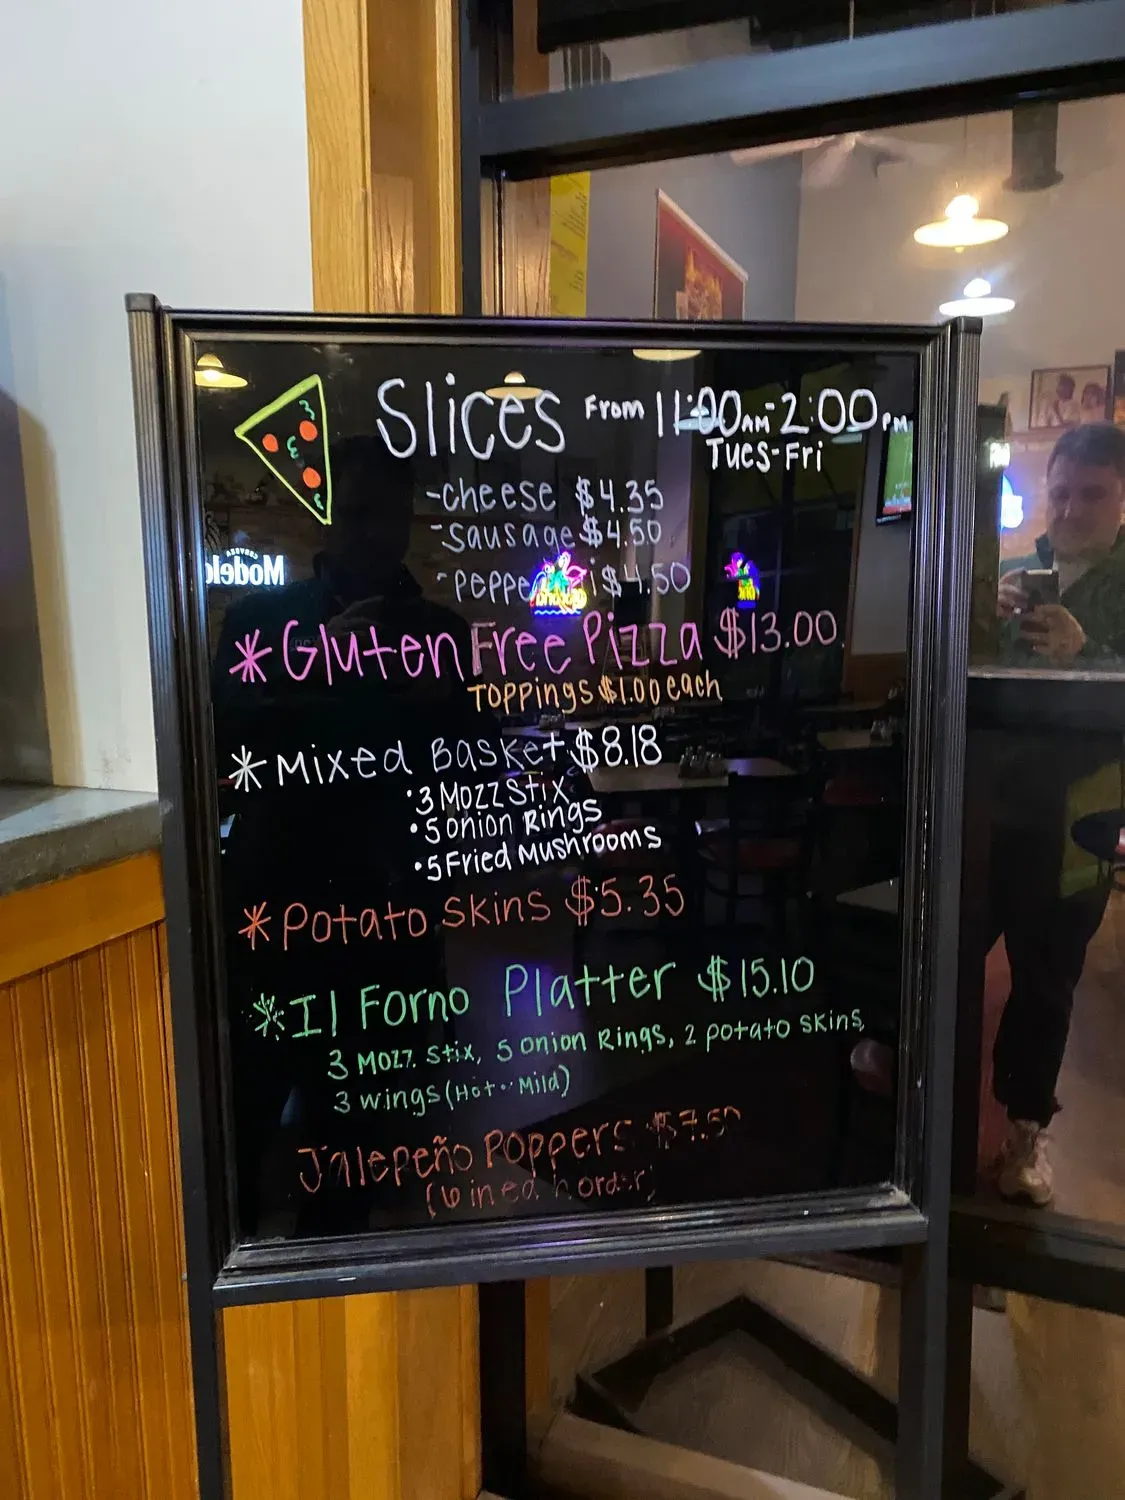 Slices From 11:00AM-2:00PM
Tues-Fri
-cheese $4.35
-sausage $4.50
-pepperoni $4.50
*Gluten Free Pizza $13.00
Toppings $1.00 each
*Mixed Basket $8.18
•3 Mozz Stix
•5 onion Rings
•5 Fried Mushrooms
*Potato Skins $5.35
*Il Forno Platter $15.10
3 Mozz. Stix, 5 onion Rings, 2 potato skins,
3 wings (Hot or Mild)
Jalepeño Poppers $7.50
(6 in each order)
Modelo